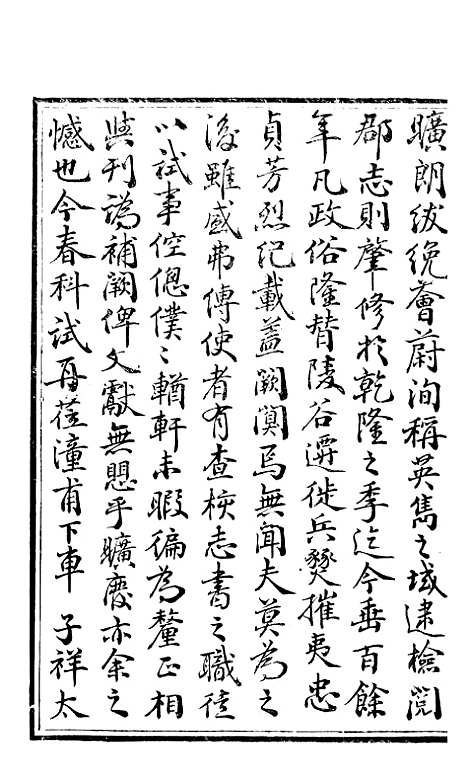 曠朗紱絻薈蔚洵稱英雋之域逮檢閱
郡志則肇修於乾隆之季迄今垂百餘
年凡政俗隆替陵谷遷徙兵燹摧夷忠
貞芳烈紀載蓋闕闃焉無聞夫莫為之
後雖盛弗傳使者有查核志書之職徒
以試事倥傯僕〻輶軒未暇徧為釐正相
與刊譌補闕俾文獻無恧乎曠廢亦余之
憾也今春科試再蒞潼甫下車 子祥太